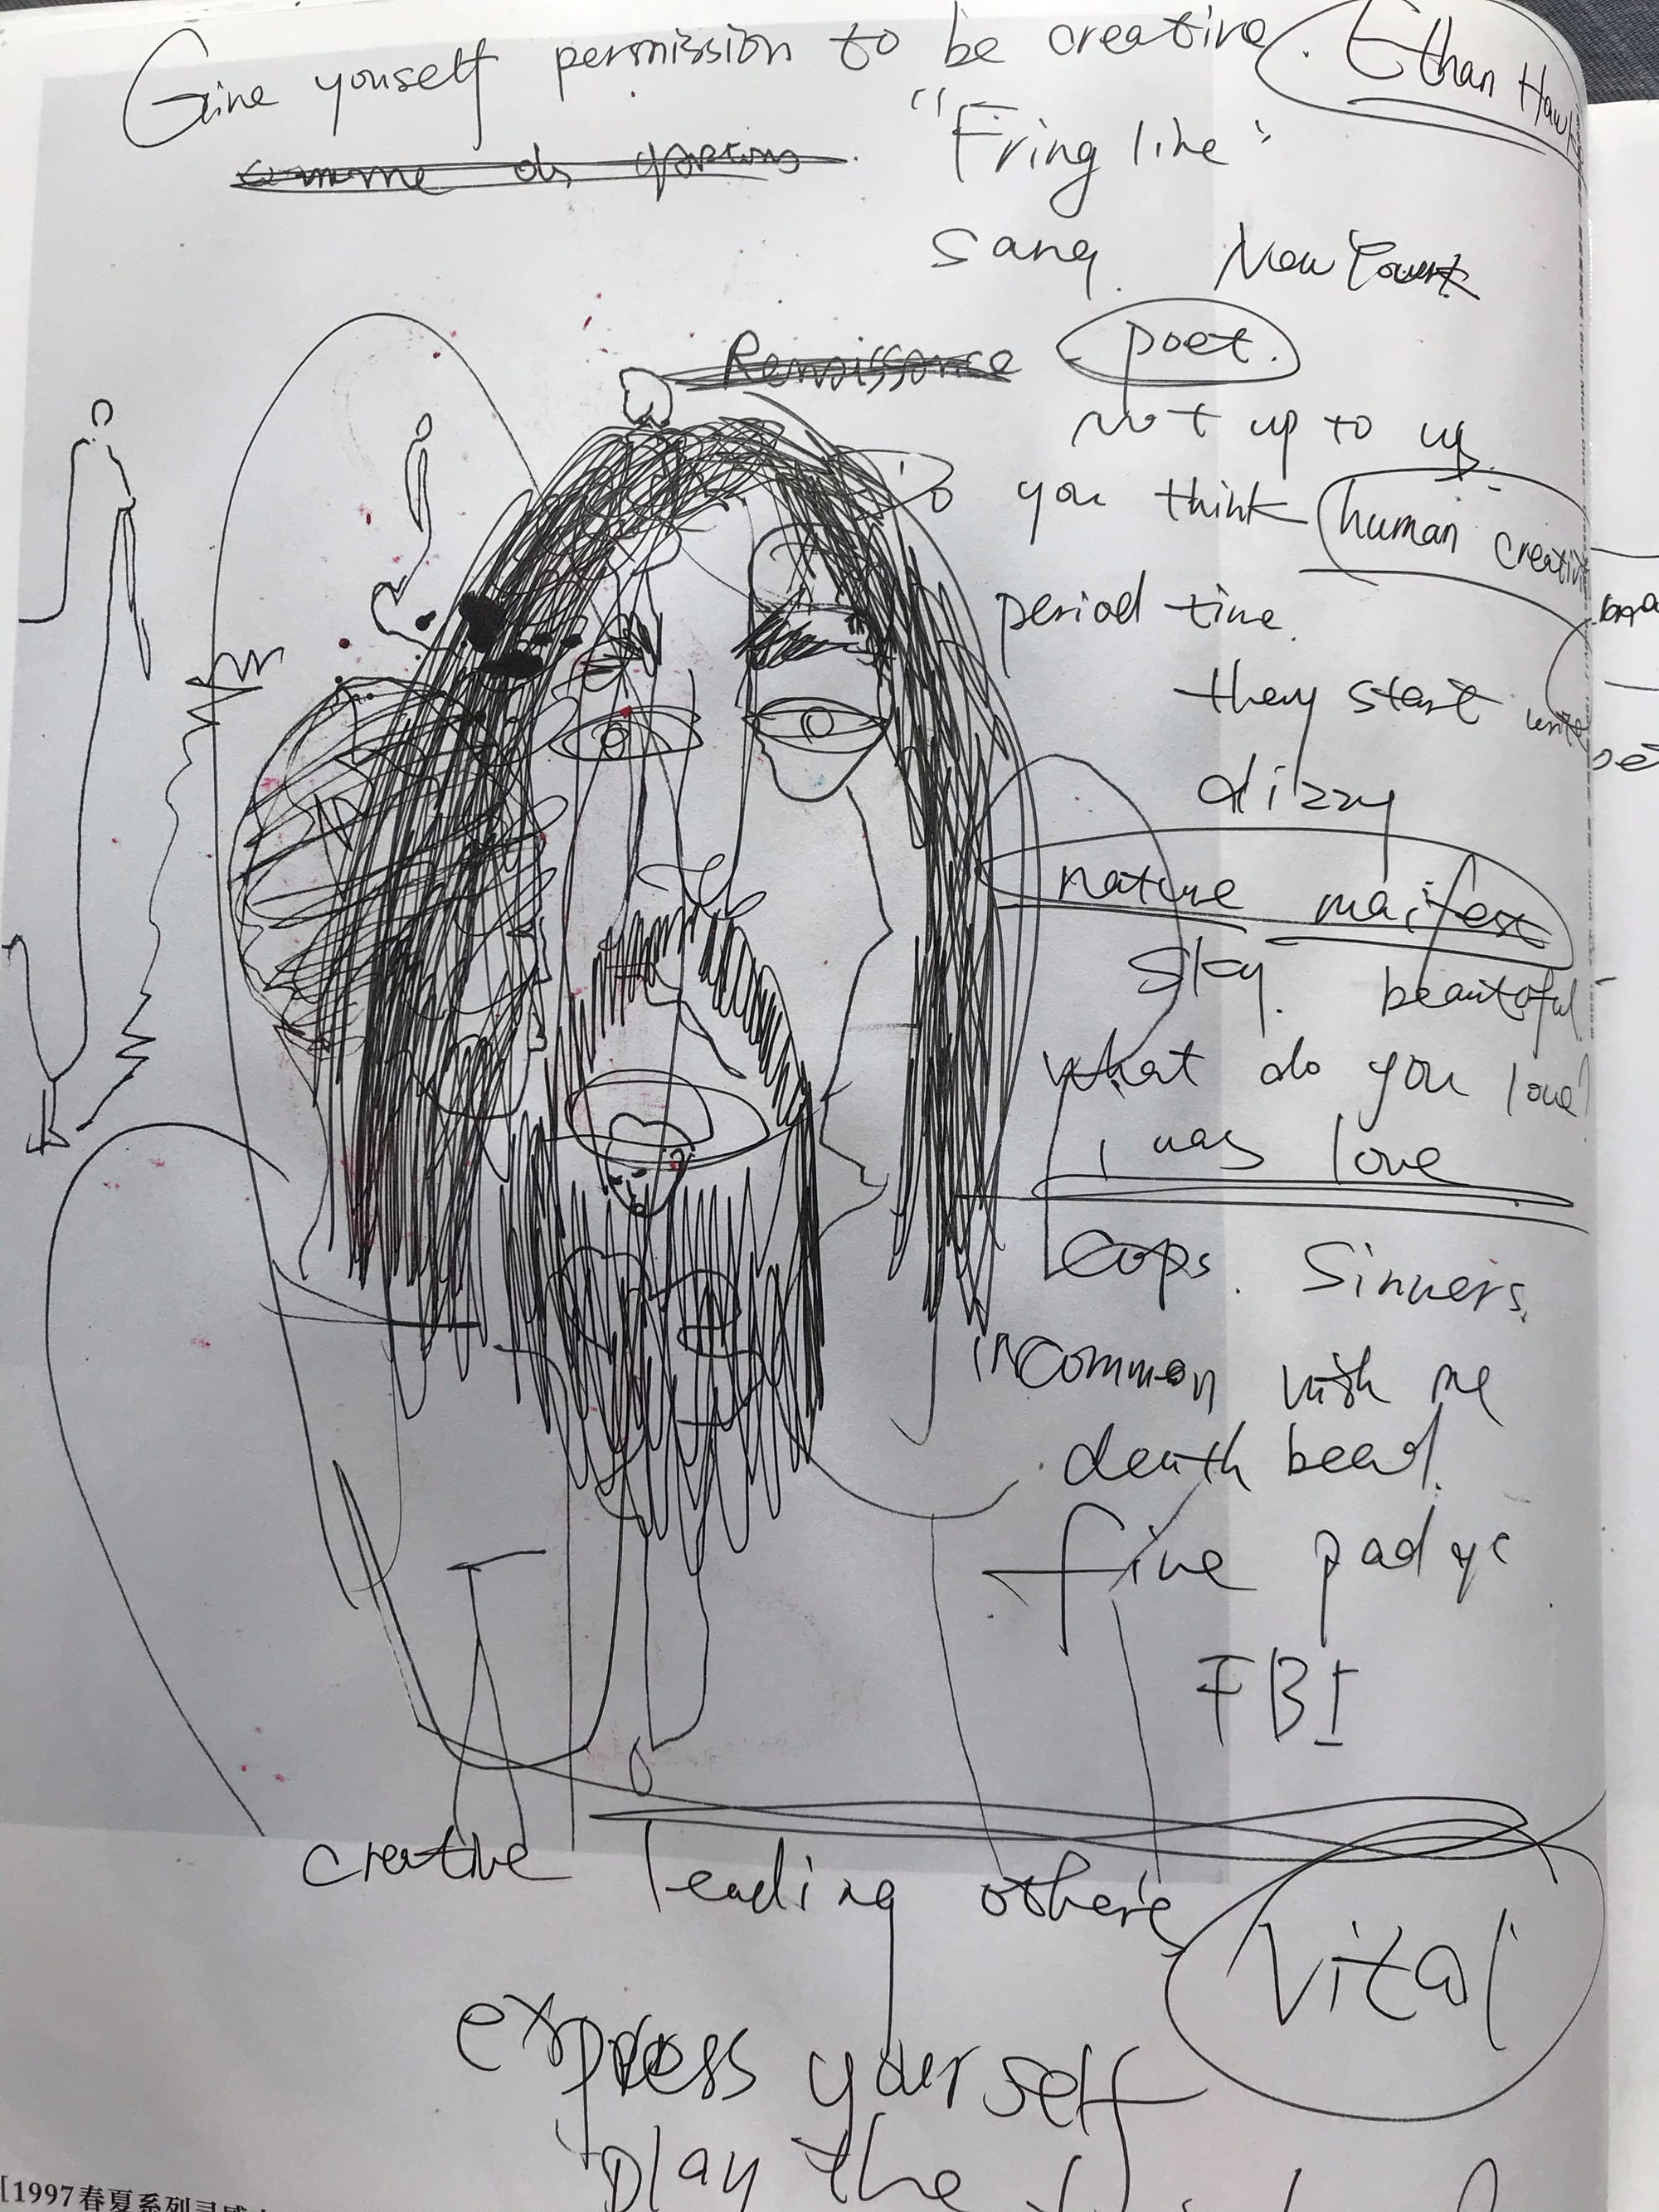 Give youself permission to be creative. Ethan Hawk
"Fring line"
sang New York
Renaissance poet.
not up to us
Do you think human creativi
period time.
they start write
dizzy
nature maifest
sky. beautoful
what do you love?
i was love
Cops. Sinners.
iNCommon with me
death bead.
five padys
FBI
creative leading others
Vital
express yourself
play the
[1997春夏系列灵感